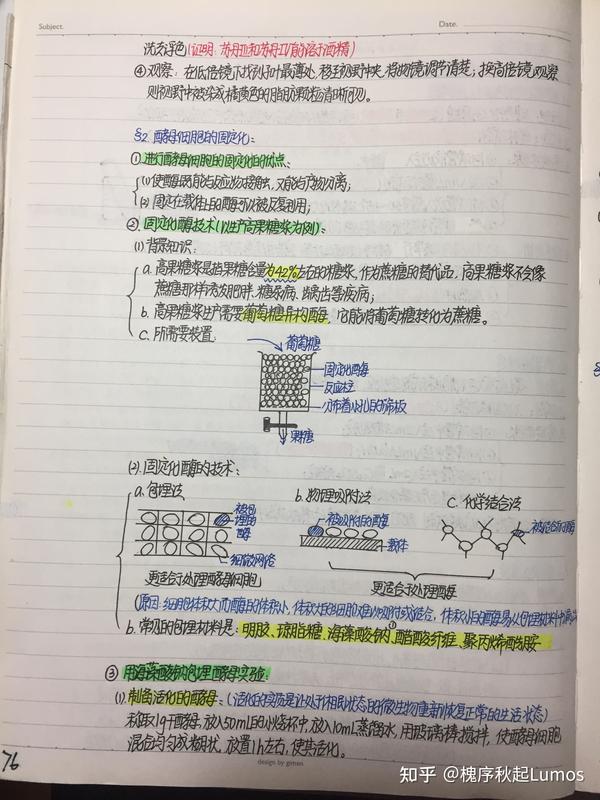 Subject.
Date.
洗去浮色(证明:苏丹Ⅲ和苏丹Ⅳ能溶于酒精)
④观察:在低倍镜下找到子叶最薄处,移至视野中央,将物镜调节清楚;换高倍镜观察
则视野中被染成橘黄色的脂肪颗粒清晰可见。
§2.酵母细胞的固定化:
①进行酵母细胞的固定化的优点:
(1)使酶既能与反应物接触,又能与产物分离;
(2)固定在载体上的酶可以被反复利用;
②固定化酶技术(以生产高果糖浆为例):
(1)背景知识:
a.高果糖浆是指果糖含量为42%左右的糖浆,作为蔗糖的替代品,高果糖浆不会像
蔗糖那样诱发肥胖、糖尿病、龋齿等疾病;
b.高果糖浆生产需要葡萄糖异构酶,它能将葡萄糖转化为蔗糖。
c.所需要装置:
葡萄糖
固定化酶
反应柱
分布着小孔的筛板
果糖
(2).固定化酶的技术:
a.包埋法
b.物理吸附法
c.化学结合法
被包
埋的
酶
细微网格
被吸附的酶
载体
被结合的酶
更适合于处理酵母细胞
更适合于处理酶
(原因:细胞体积大而酶的体积小,体积大的细胞难以吸附或结合,体积小的酶易从包埋材料中漏出
b.常见的包埋材料是:明胶、琼脂糖、海藻酸钠、醋酸纤维、聚丙烯酰胺
③用海藻酸钠包埋酵母实验:
(1).制备活化的酵母:(活化的实质是让处于休眠状态的微生物重新恢复正常的生活状态)
称取1g干酵母,放入50mL的小烧杯中,放入10mL蒸馏水,用玻璃棒搅拌,使酵母细胞
混合均匀成糊状,放置1h左右,使其活化。
76
design by gimen
知乎 @槐序秋起Lumos